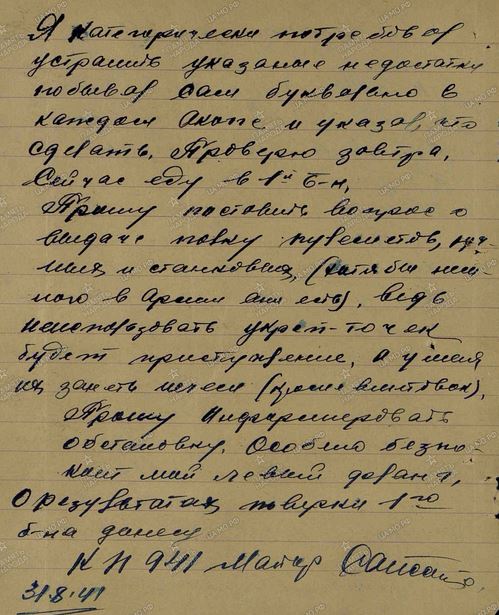 Я категорически потребовал
устранить указаные недостатки
побывал сам буквально в
каждом окопе и указал, что
сделать. Проверю завтра.
Сейчас еду в 1й б-н,
Прошу поставить вопрос о
выдаче полку пулеметов, руч-
ных и станковых, (хотя бы нем-
ного в Армии они есть), ведь
неиспользовать укреп-точек
будет приступление, а у меня
их занять нечем (кроме винтовок).
Прошу информировать
обстановку. Особено безпо-
коит мий левый
О результатах поверки 1го
б-на донесу
К П 941 Майор
31.8.41